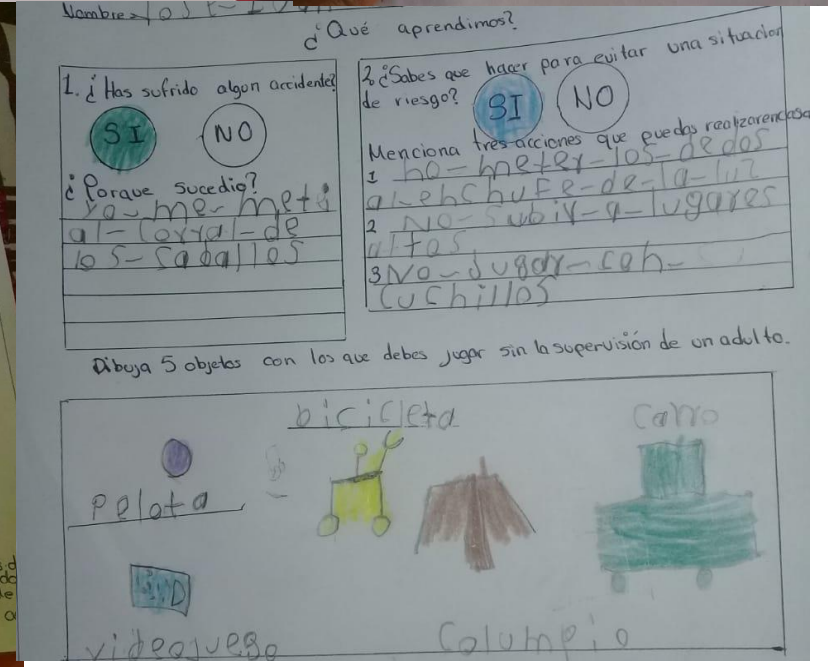 Nombre
¿Qué aprendimos?
1. ¿Has sufrido algun accidente?
SI NO
¿Porque sucedio?
Yo-me-metí
al-corral-de
los-caballos
2. ¿Sabes que hacer para evitar una situación
de riesgo? SI NO
Menciona tres acciones que puedas realizar en casa
1 no-meter-los-dedos
al-enchufe-de-la-luz
2 No-subir-a-lugares
altos
3 No-Jugar-con-
cuchillos
Dibuja 5 objetos con los que debes jugar sin la supervisión de un adulto.
bicicleta carro
pelota
videojuego columpio